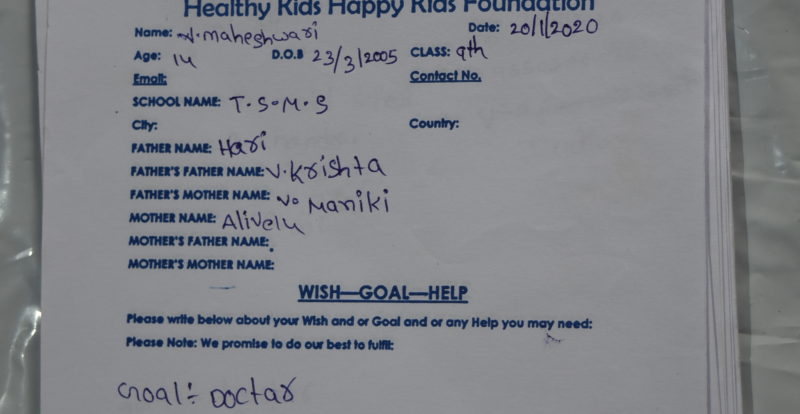 Healthy Kids Happy Kids Foundation
Name: N. maheshwari Date: 20/1/2020
Age: 14 D.O.B 23/3/2005 CLASS: 9th
Email: Contact No.
SCHOOL NAME: T.S.M.S
City: Country:
FATHER NAME: Hari
FATHER'S FATHER NAME: V. Krishta
FATHER'S MOTHER NAME: V. Maniki
MOTHER NAME: Alivelu
MOTHER'S FATHER NAME:
MOTHER'S MOTHER NAME:
WISH—GOAL—HELP
Please write below about your Wish and or Goal and or any Help you may need:
Please Note: We promise to do our best to fulfil:
Goal: Doctar